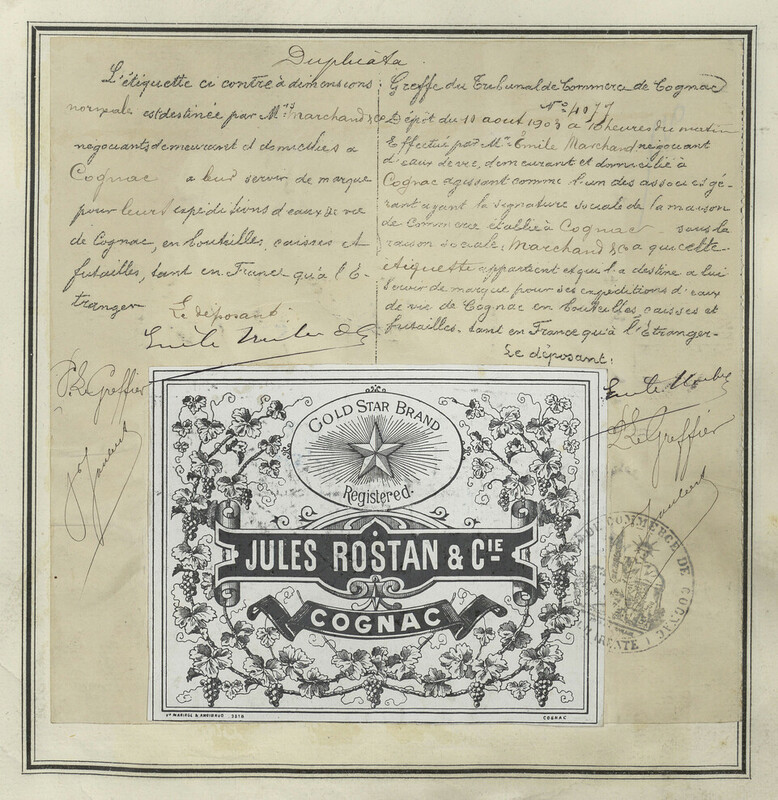 Duplicata
L'étiquette ci contre à dimensions
normales est destinée par Mrs Marchand & Co
négociants demeurant et domiciliés à
Cognac à leur servir de marque
pour leurs expéditions d'eaux de vie
de Cognac, en bouteilles, caisses et
futailles, tant en France qu'à l'É-
tranger
Le déposant:
P. Le Greffier
Greffe du Tribunal de Commerce de Cognac
No 4077
Dépôt du 10 aout 1903 à 10 heures du matin
Effectué par Mr Émile Marchand négociant
d'eaux de vie, demeurant et domicilié à
Cognac agissant comme l'un des associés gé-
rant ayant la signature sociale de la maison
de Commerce établie à Cognac sous la
raison sociale: Marchand & Co a qui cette
étiquette appartient et qui l'a destine a lui
servir de marque pour ses expéditions d'eaux
de vie de Cognac en bouteilles, caisses et
futailles, tant en France qu'à l'Étranger-
Le déposant:
P. Le Greffier
GOLD STAR BRAND
Registered.
JULES ROSTAN & CIE
COGNAC
COGNAC
DE COMMERCE DE COGNAC